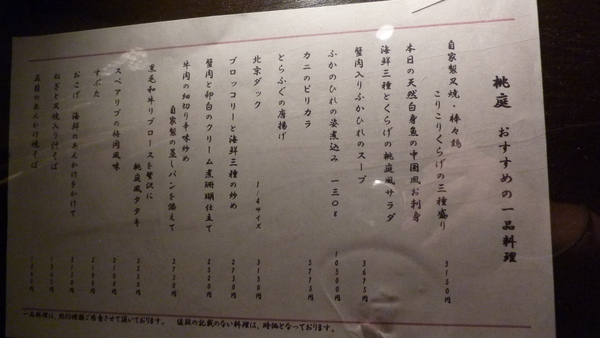 桃庭 おすすめの一品料理
自家製叉焼・棒々鶏
こりこりくらげの三種盛り 3150円
本日の天然白身魚の中国風お刺身
海鮮三種とくらげの桃庭風サラダ
蟹肉入りふかひれのスープ 3675円
ふかのひれの姿煮込み 一三〇g 10500円
カニのピリカラ 3775円
とらふぐの唐揚げ
北京ダック 1/4サイズ 3150円
ブロッコリーと海鮮三種の炒め 2730円
蟹肉と卵白のクリーム煮珊瑚仕立て 2520円
牛肉の細切り辛味炒め
自家製の蒸しパンを添えて 2730円
黒毛和牛リブロースを贅沢に
桃庭風タタキ
スペアリブの梅肉風味 2100円
すぶた 2100円
おこげ 海鮮のあんかけをかけて
ねぎと叉焼入り汁そば 1365円
五目のあんかけ焼そば 1260円
一品料理は、 させて頂いております。 値段の記載のない料理は、時価となっております。